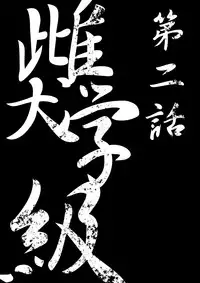 第二話
雌犬学級